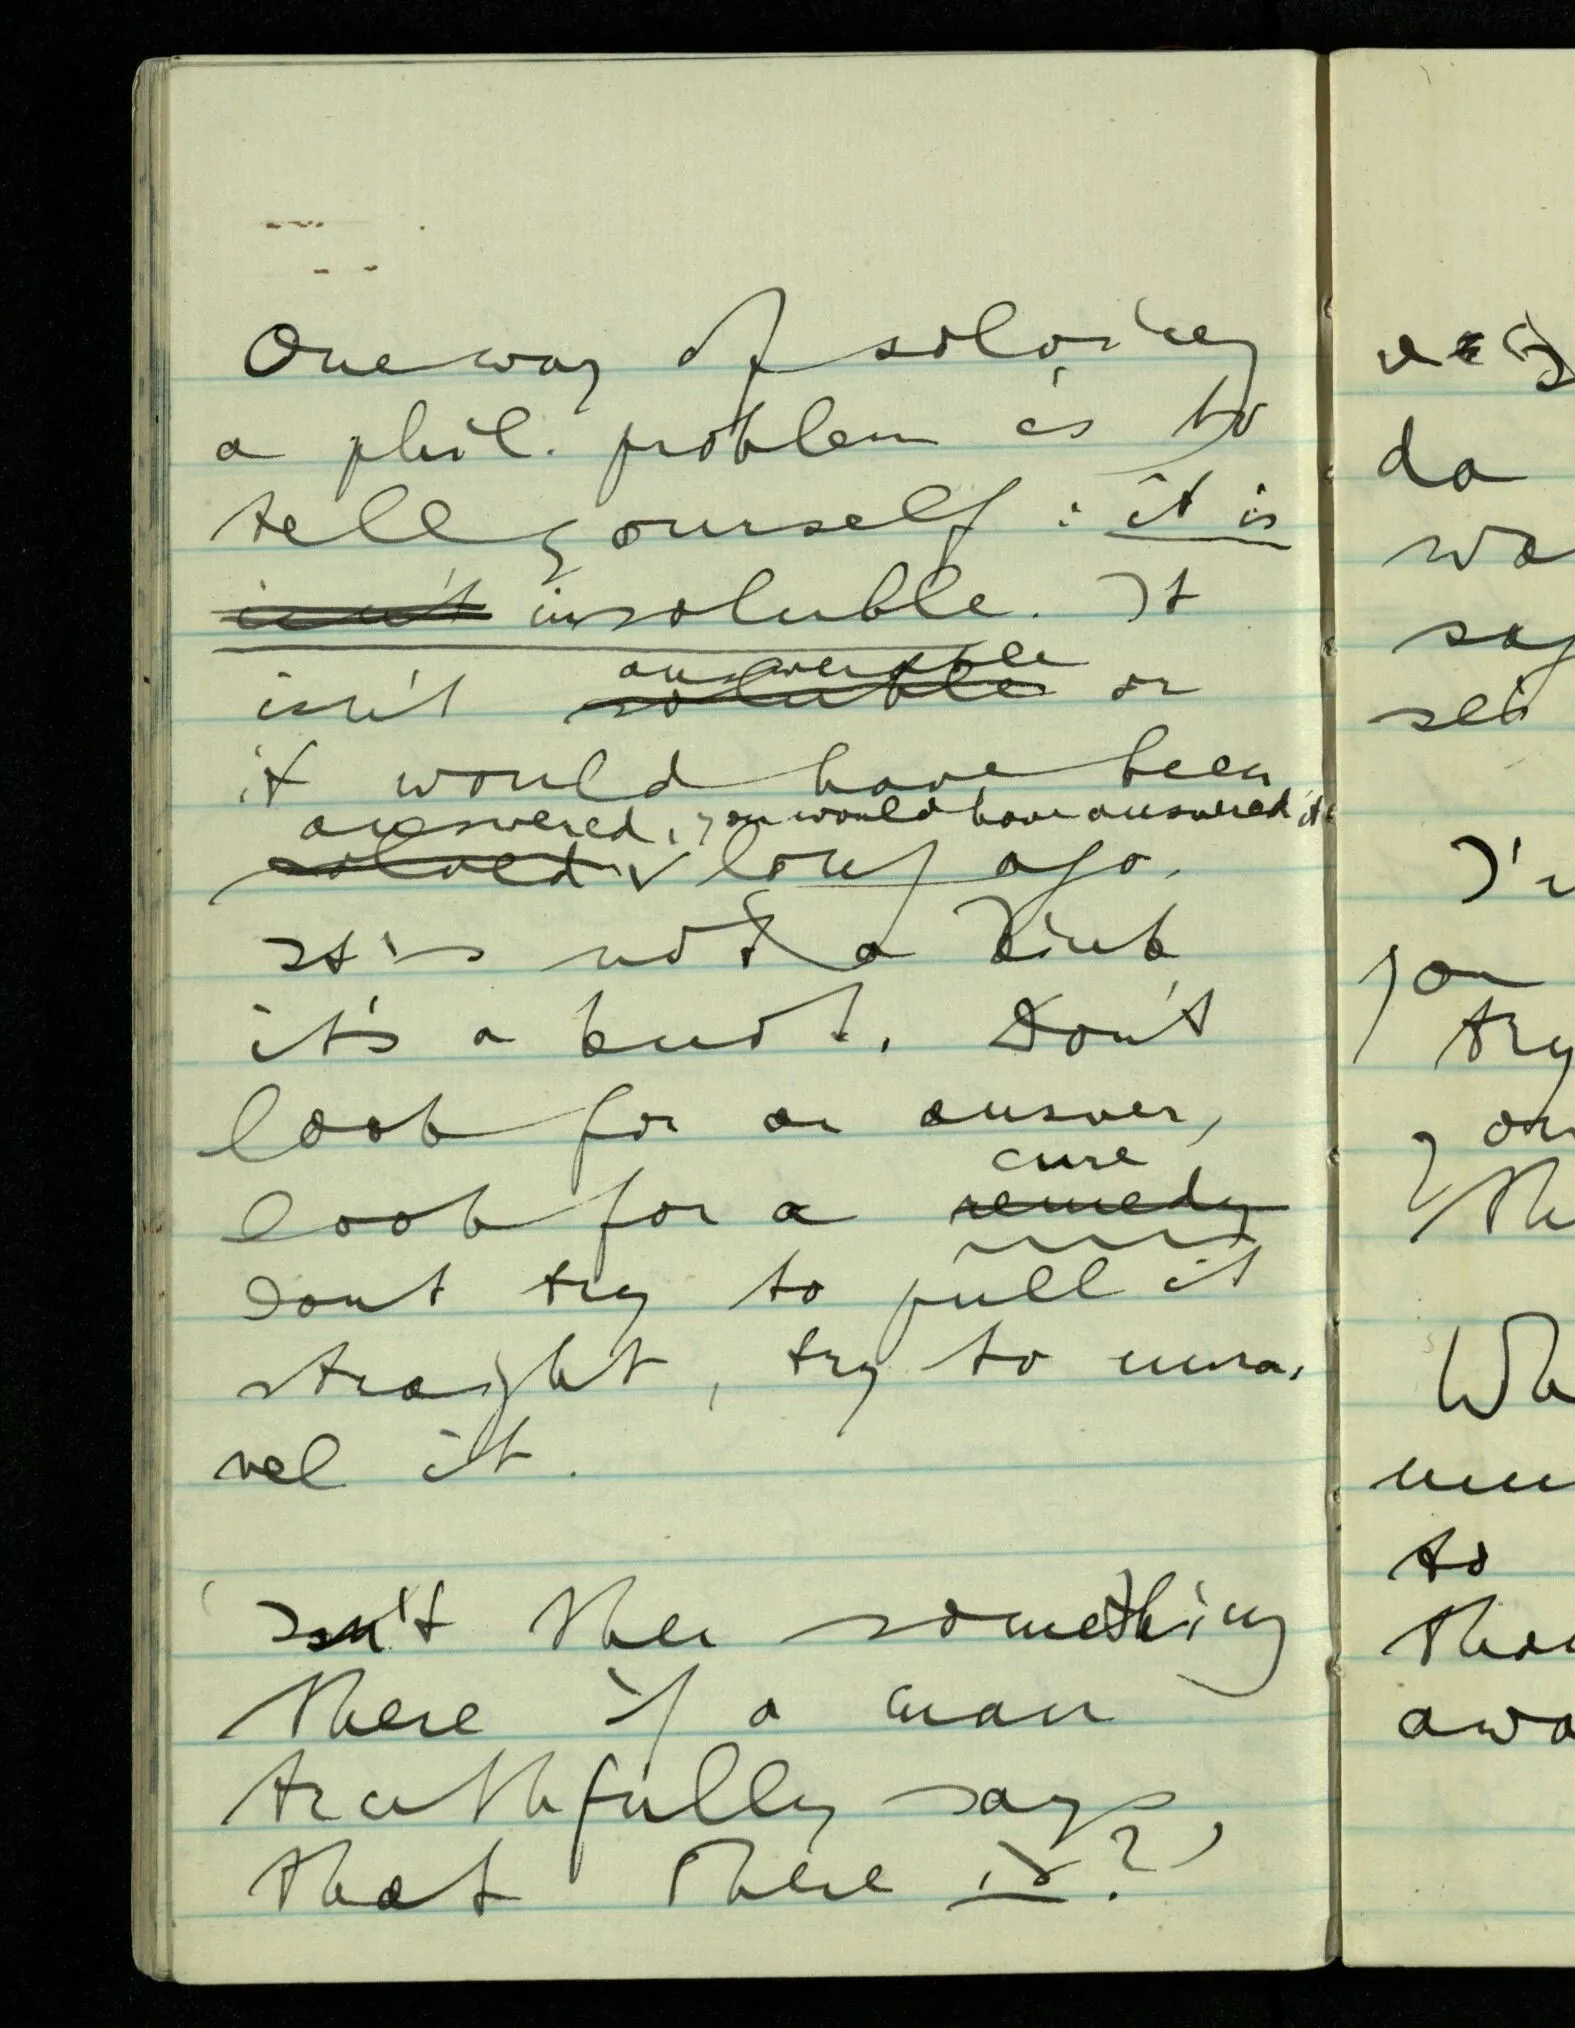 One way of solving
a phil. problem is to
tell yourself : it is
isn't insoluble. It
answerable
isn't soluble or
it would have been
answered, you would have answered it
solved long ago.
It's not a kink
it's a knot. Don't
look for an answer,
cure
look for a remedy
dont try to pull it
straight, try to unra-
vel it.
'Isn't ther something
there if a man
truthfully says
that there is?'
do
say
I'
you
try
to